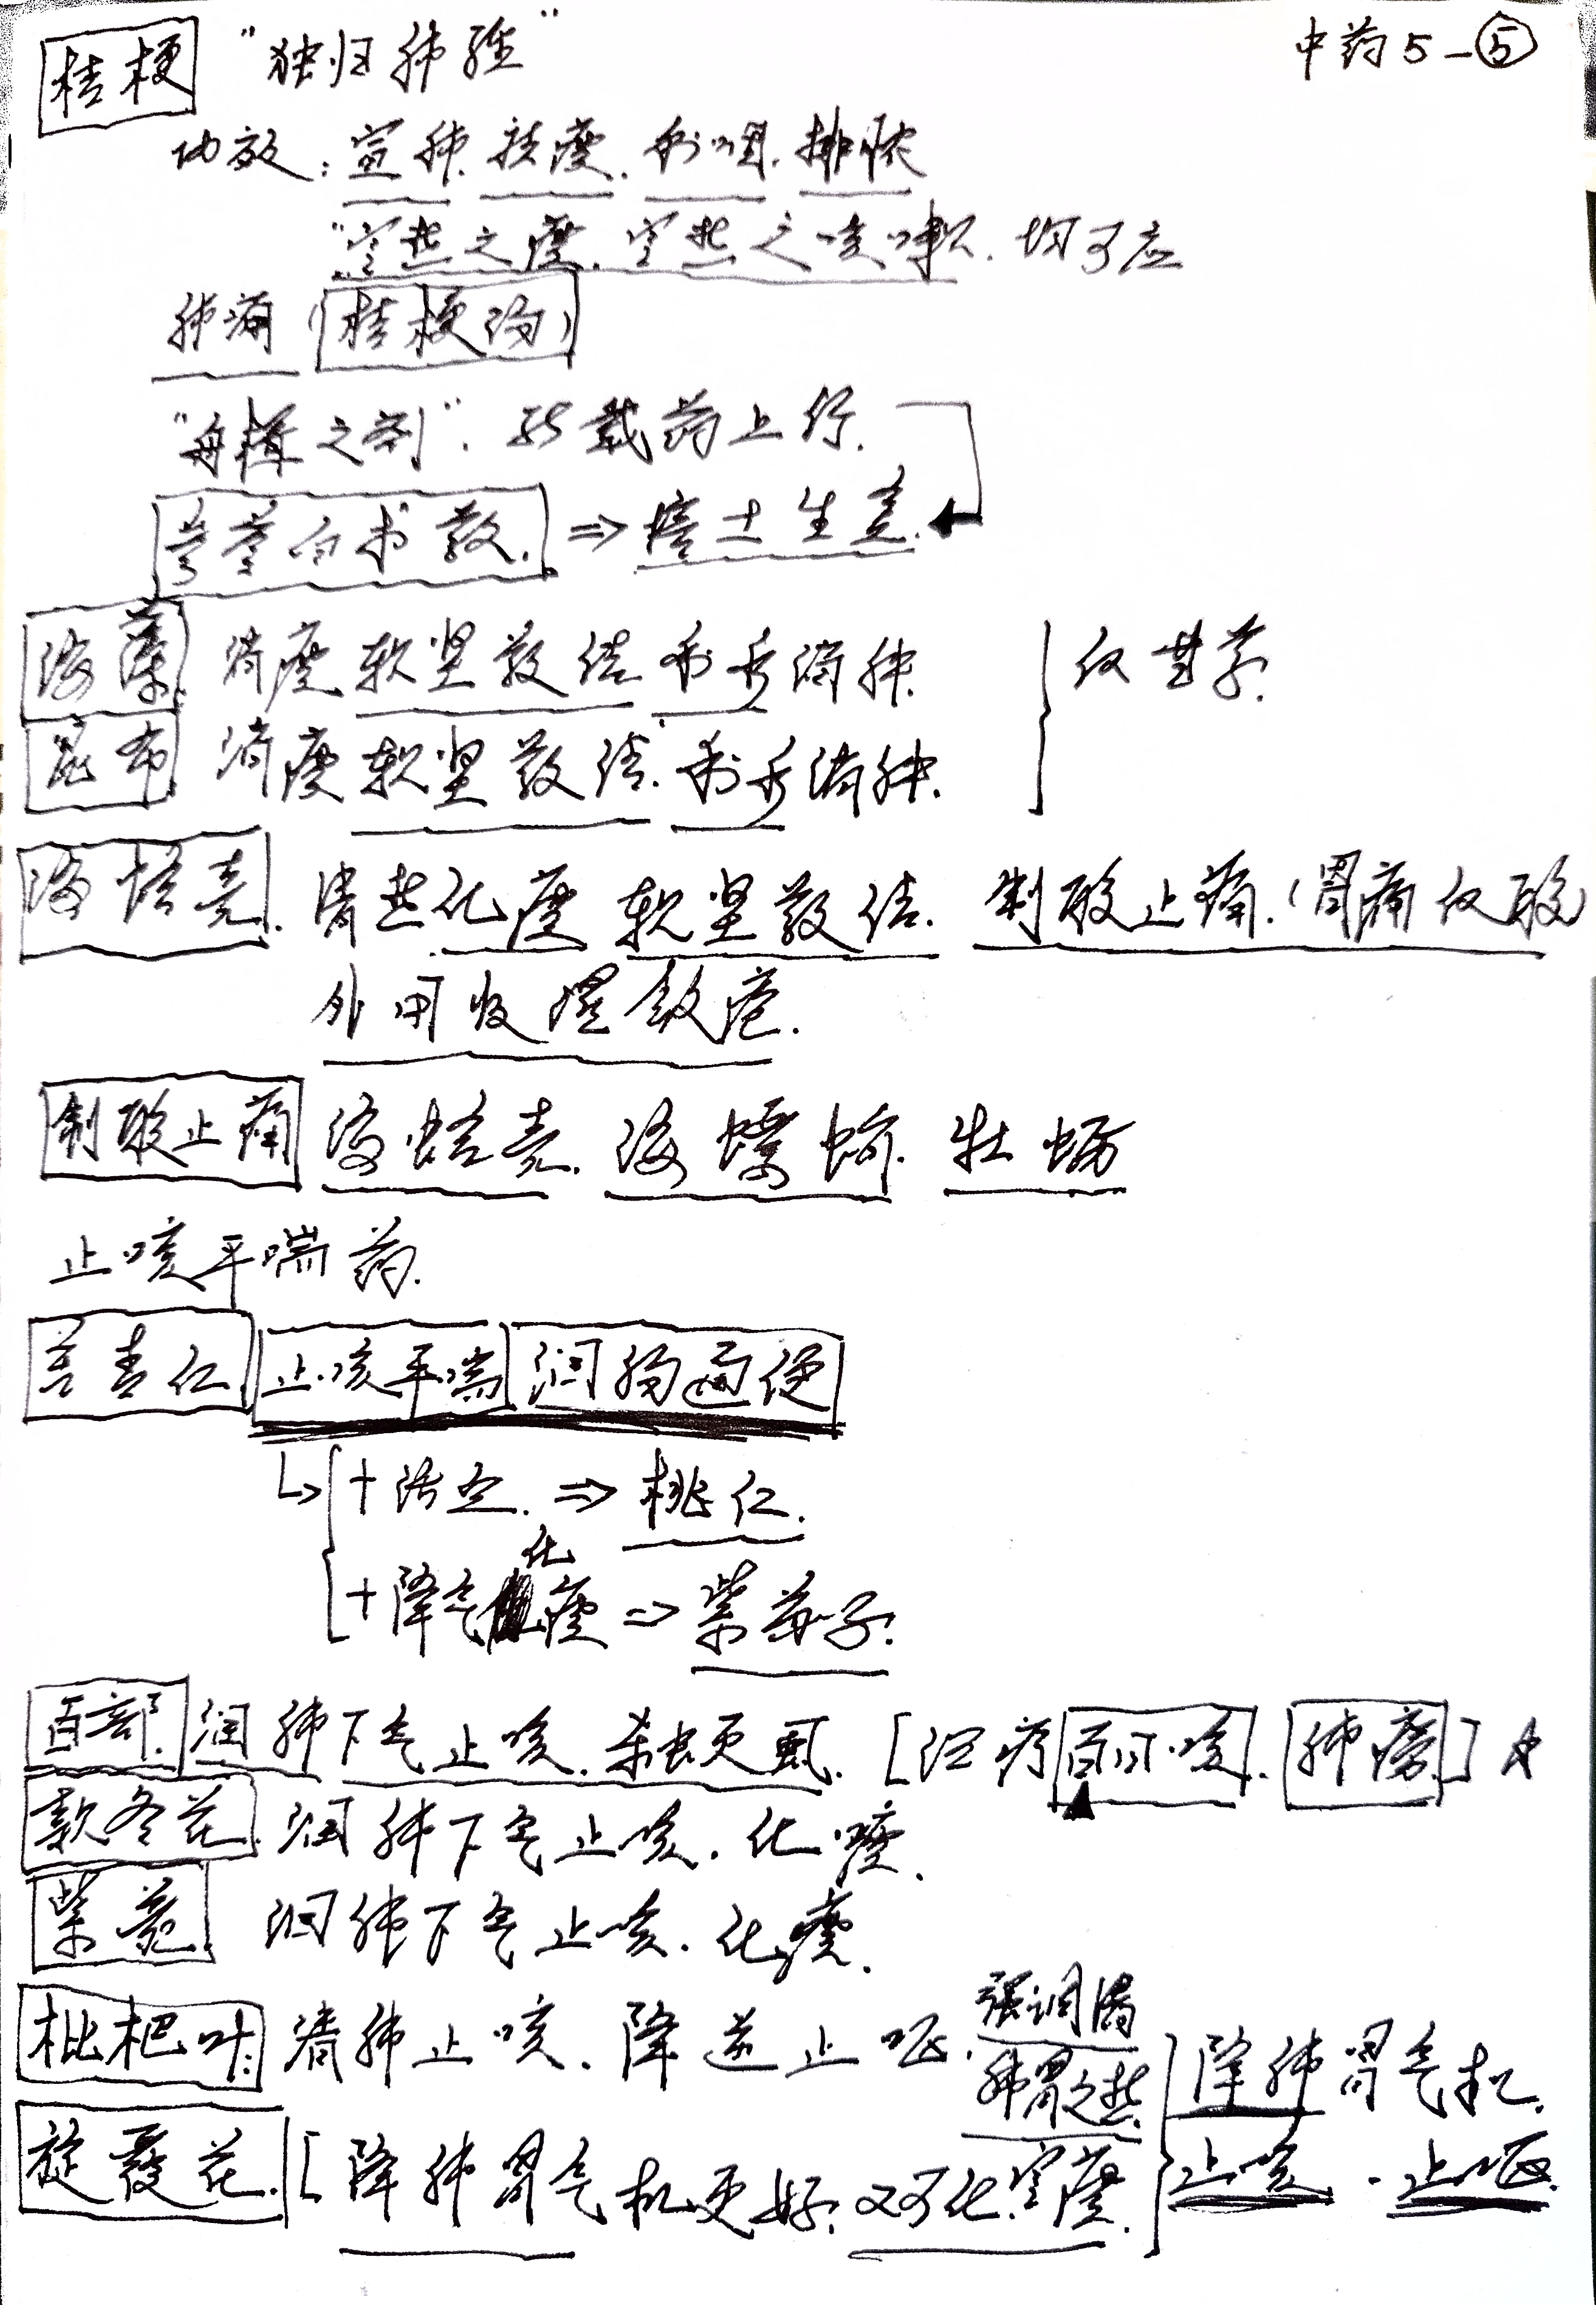 桔梗 "独归肺经" 中药5-⑤
功效:宣肺.祛痰.利咽.排脓
"寒热之痰.寒热之咳嗽.均可应
肺痈(桔梗汤)
"舟楫之剂".能载药上行.
参苓白术散.⇒培土生金.
海藻.消痰软坚散结.利水消肿.
昆布.消痰软坚散结.利水消肿.
反甘草.
海蛤壳.清热化痰 软坚散结.制酸止痛.(胃痛反酸)
外用收湿敛疮.
制酸止痛 海蛤壳.海螵蛸.牡蛎
止咳平喘药.
苦杏仁.止咳平喘 润肠通便
↳ +活血.⇒桃仁.
+降气化痰⇒紫苏子.
百部.润肺下气止咳.杀虫灭虱.[治疗百日咳.肺痨]
款冬花.润肺下气止咳.化痰.
紫菀.润肺下气止咳.化痰.
枇杷叶.清肺止咳.降逆止呕.强调清
肺胃之热.
旋覆花.[降肺胃气机更好.又可化寒痰.
降肺胃气机.
止咳.止呕.